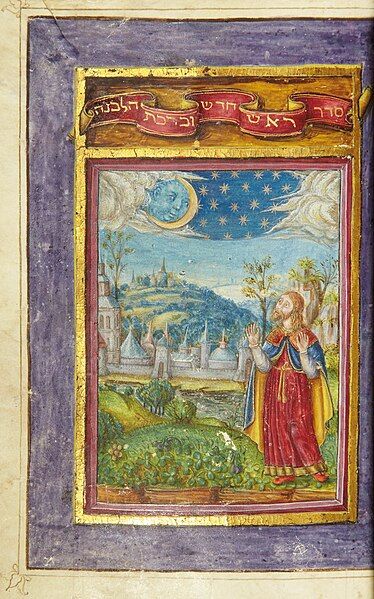 סדר ראש חדש וברכת הלבנה